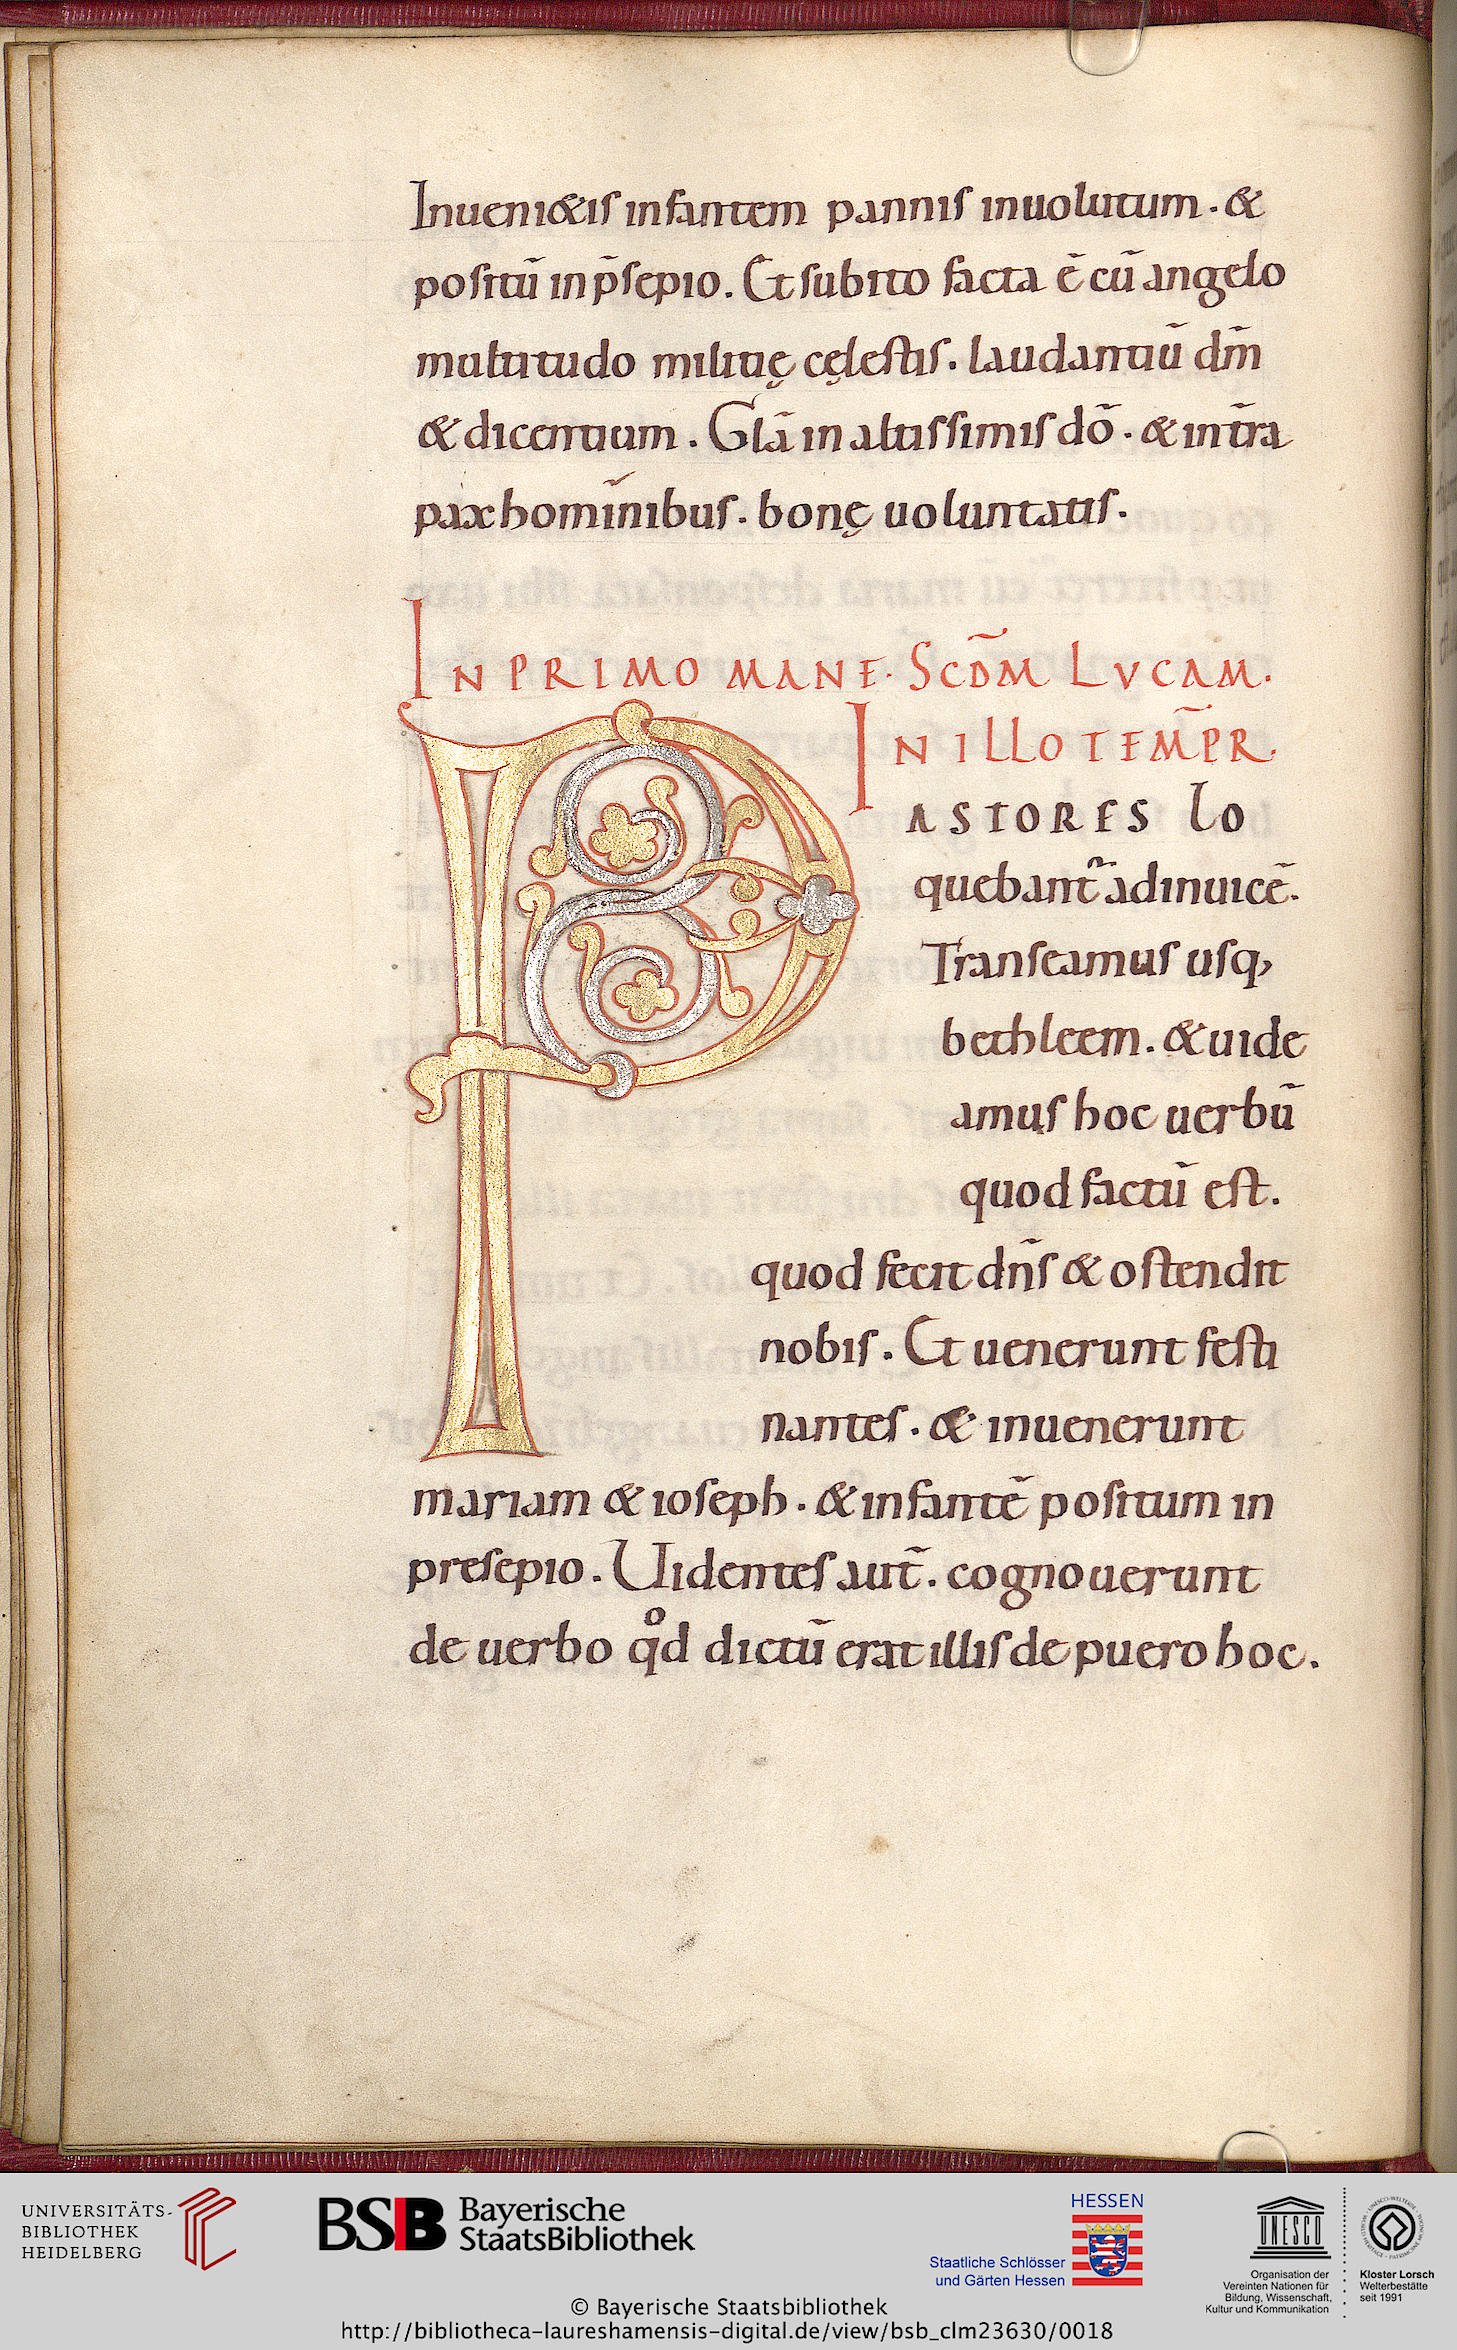 Inueni&is infantem pannis inuolutum. &
positū in p̄sepio. Et subito facta ē cū angelo
multitudo militię cęlestis. laudantiū dm̄
& dicentium. Glā in altissimis dō. & in t̄ra
pax hominibus. bonę uoluntatis.
IN PRIMO MANE. SCDM̄ LVCAM.
IN ILLO TEMP̄R.
PASTORES lo
quebant᷑ adinuicē.
Transeamus usq,
bethleem. & uide
amus hoc uerbū
quod factū est.
quod fecit dn̄s & ostendit
nobis. Et uenerunt festi
nantes. & inuenerunt
mariam & ioseph. & infantē positum in
presepio. Uidentes aut̄. cognouerunt
de uerbo qͦd dictū erat illis de puero hoc.
UNIVERSITÄTS-
BIBLIOTHEK
HEIDELBERG
BSB Bayerische
StaatsBibliothek
HESSEN
Staatliche Schlösser
und Gärten Hessen
UNESCO
Organisation der
Vereinten Nationen für
Bildung, Wissenschaft,
Kultur und Kommunikation
Kloster Lorsch
Welterbestätte
seit 1991
© Bayerische Staatsbibliothek
http://bibliotheca-laureshamensis-digital.de/view/bsb_clm23630/0018